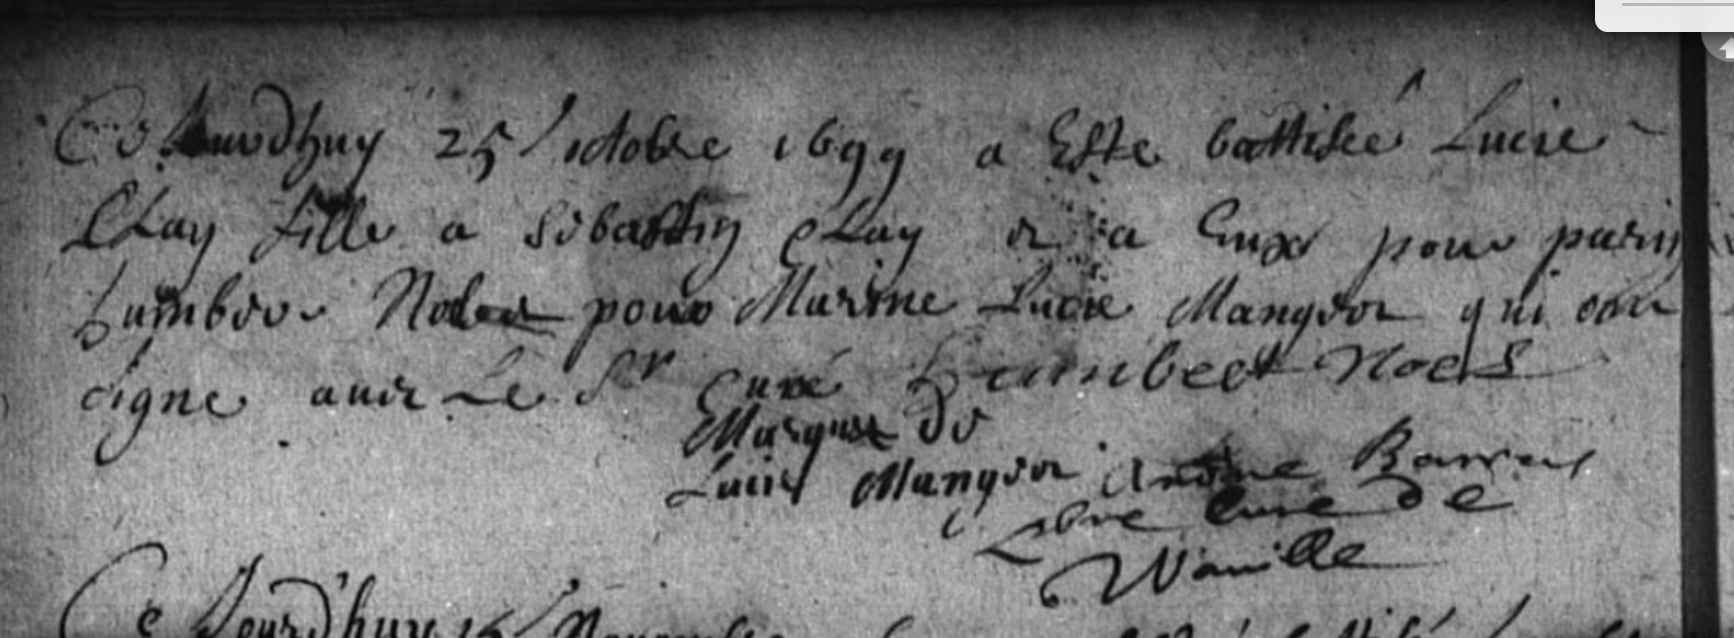 Ce Jourdhuy 25 octobre 1699 a Este battisée Lucie
Chay fille a Sebastin Chay et a Eux pour parin
humber Noel pour Marine Lucie Mangeot qui ont
signe avec Le Sr Curé humbert Noel
Marque de
Lucie Mangeot Andre
Curé de
Ce Jourd'huy 15